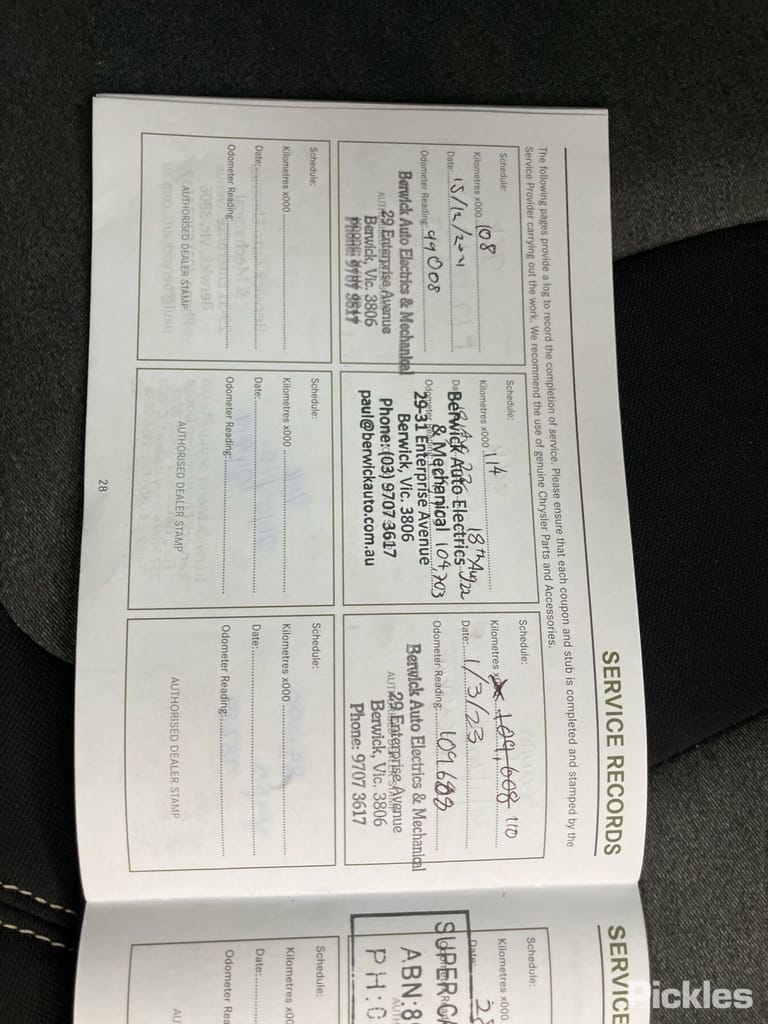 SERVICE RECORDS
The following pages provide a log to record the completion of service. Please ensure that each coupon and stub is completed and stamped by the
Service Provider carrying out the work. We recommend the use of genuine Chrysler Parts and Accessories.
Schedule:
Kilometres x000 108
Date: 15/12/2021
Odometer Reading: 99008
Berwick Auto Electrics & Mechanical
29 Enterprise Avenue
Berwick, Vic. 3806
Phone: 9707 3617
Schedule:
Kilometres x000 114
18th Aug 22
Berwick Auto Electrics
& Mechanical 104,703
29-31 Enterprise Avenue
Berwick, Vic. 3806
Phone: (03) 9707 3617
paul@berwickauto.com.au
Schedule:
Kilometres 109,608 110
Date: 1/3/23
Odometer Reading: 109608
Berwick Auto Electrics & Mechanical
29 Enterprise Avenue
Berwick, Vic. 3806
Phone: 9707 3617
Schedule:
Kilometres x000
Date:
Odometer Reading:
AUTHORISED DEALER STAMP
Schedule:
Kilometres x000
Date:
Odometer Reading:
AUTHORISED DEALER STAMP
Schedule:
Kilometres x000
Date:
Odometer Reading:
AUTHORISED DEALER STAMP
28
SERVICE
Schedule:
Kilometres x000
Date:
SUPER
ABN:
PH:
Schedule:
Kilometres x00
Date:
Odometer Rea
AU
Pickles